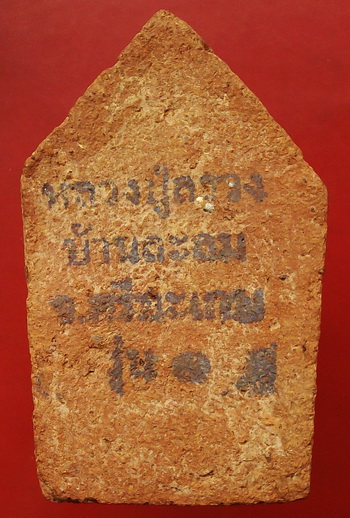 หลวงปู่สรวง
บ้านละลม
จ.ศรีสะเกษ
รุ่น ๑